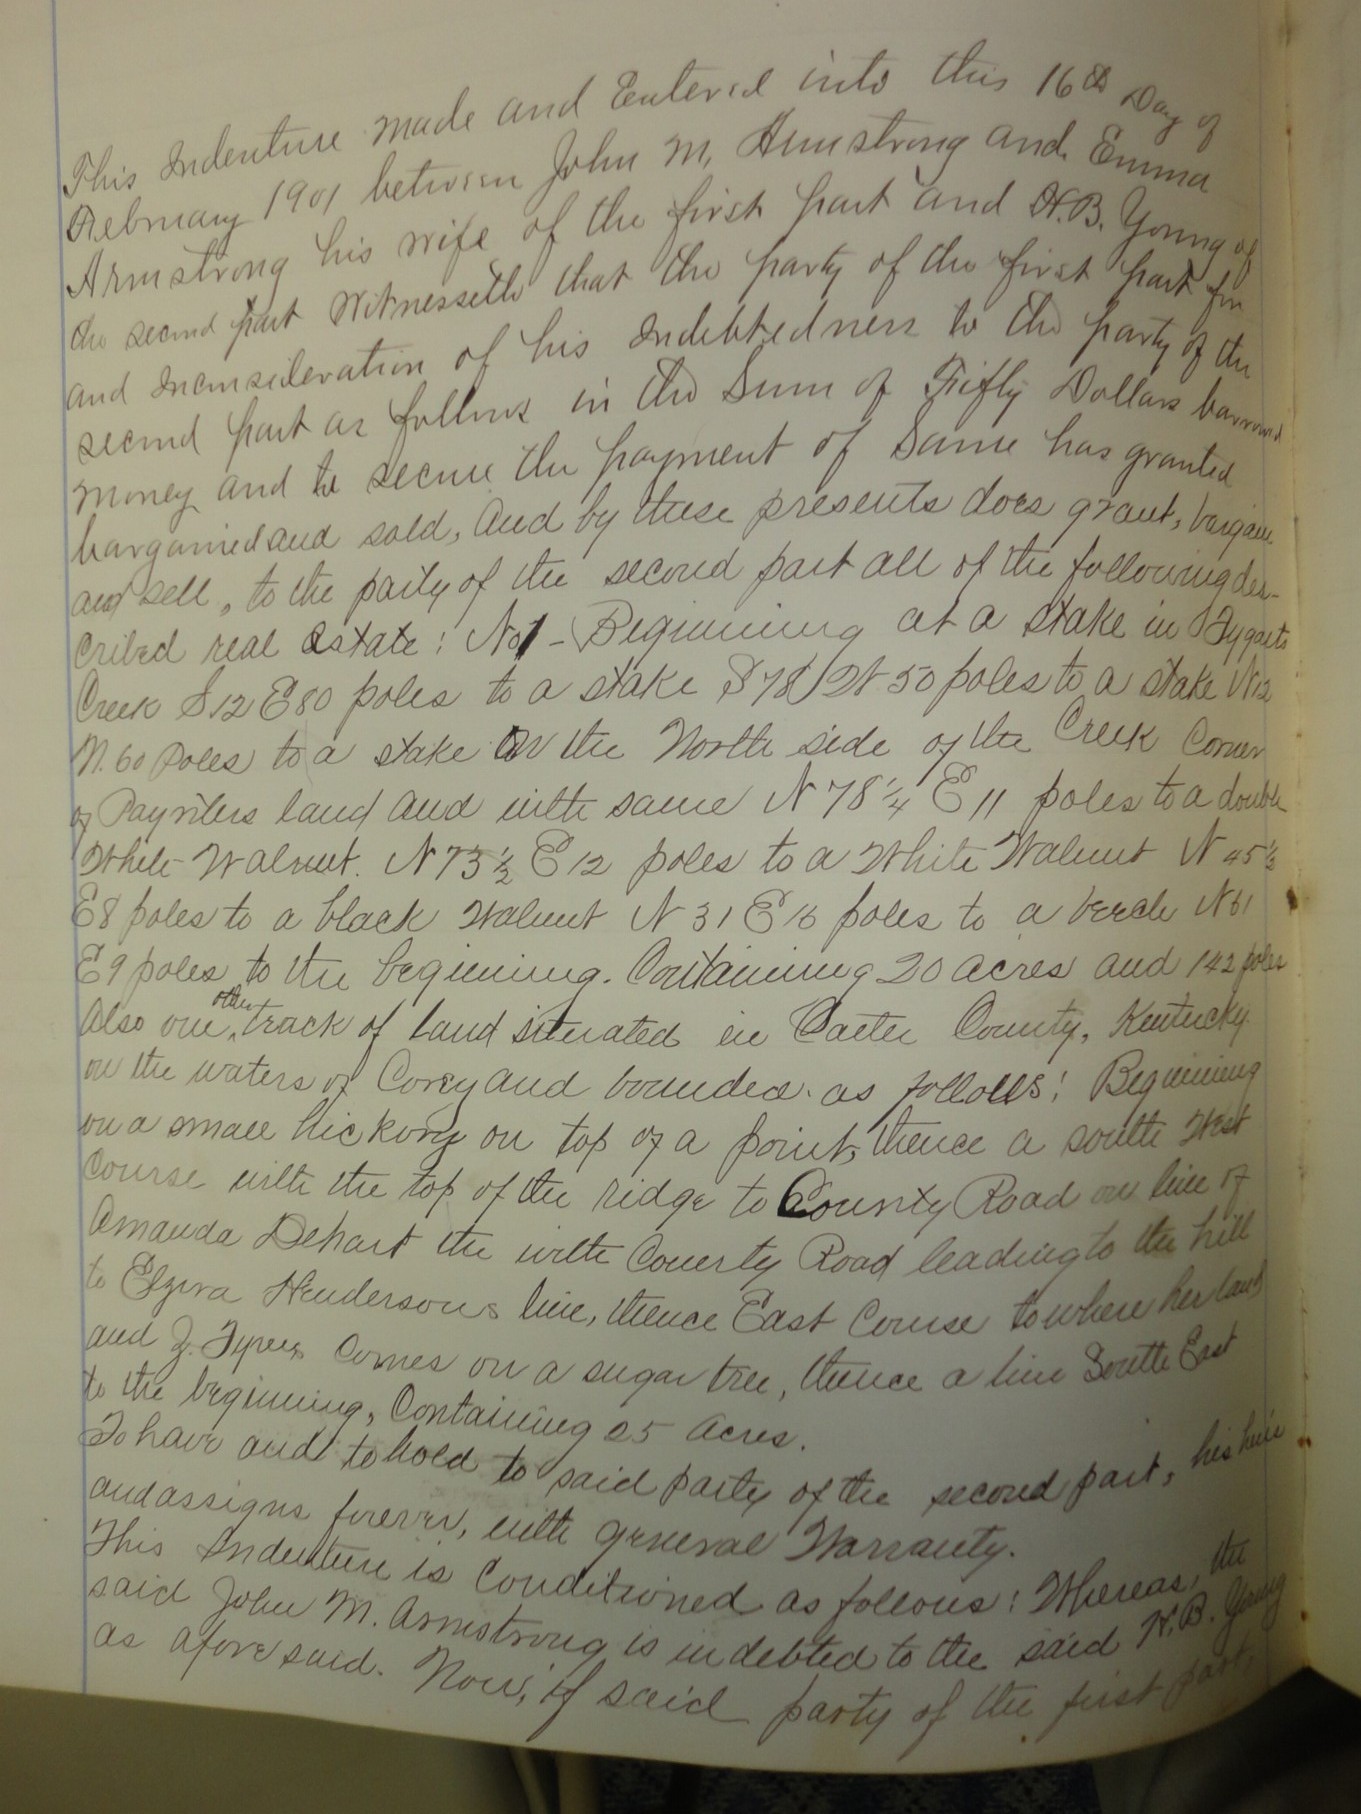 This Indenture made and Entered into this 16th Day of
February 1901 between John M. Armstrong and Emma
Armstrong his wife of the first part and H.B. Young of
the second part Witnesseth that the party of the first part for
and Inconsideration of his Indebtedness to the party of the
second part as follows in the Sum of Fifty Dollars barrowed
money and to secure the payment of Same has granted
bargained and sold, And by these presents does grant, bargain
and sell, to the party of the second part all of the following des-
cribed real Estate: No1 - Beginning at a stake in Tygarts
Creek S12 E80 poles to a stake S78 W 50 poles to a stake N12
W. 60 Poles to a stake on the North side of the Creek Corner
of land and with same N 78 1/4 E 11 poles to a double
White Walnut. N 73 1/2 E 12 poles to a White Walnut N 45 1/2
E8 poles to a black Walnut N 31 E 16 poles to a beech N61
E9 poles to the beginning. Containing 20 acres and 142 poles
Also one other track of land situated in Carter County, Kentucky
on the waters of and bounded as follows: Beginning
on a small hickory on top of a point, thence a south West
Course with the top of the ridge to County Road on line of
Amanda Dehart the with County Road leading to the hill
to Henderson's line, thence East Course to where her land
and comes on a sugar tree, thence a line South East
to the beginning, Containing 25 Acres.
To have and to hold to said party of the second part, his heirs
and assigns forever, with general Warranty.
This Indenture is Conditioned as follows: Whereas, the
said John M. Armstrong is indebted to the said H.B. Young
as aforesaid. Now, if said party of the first part,